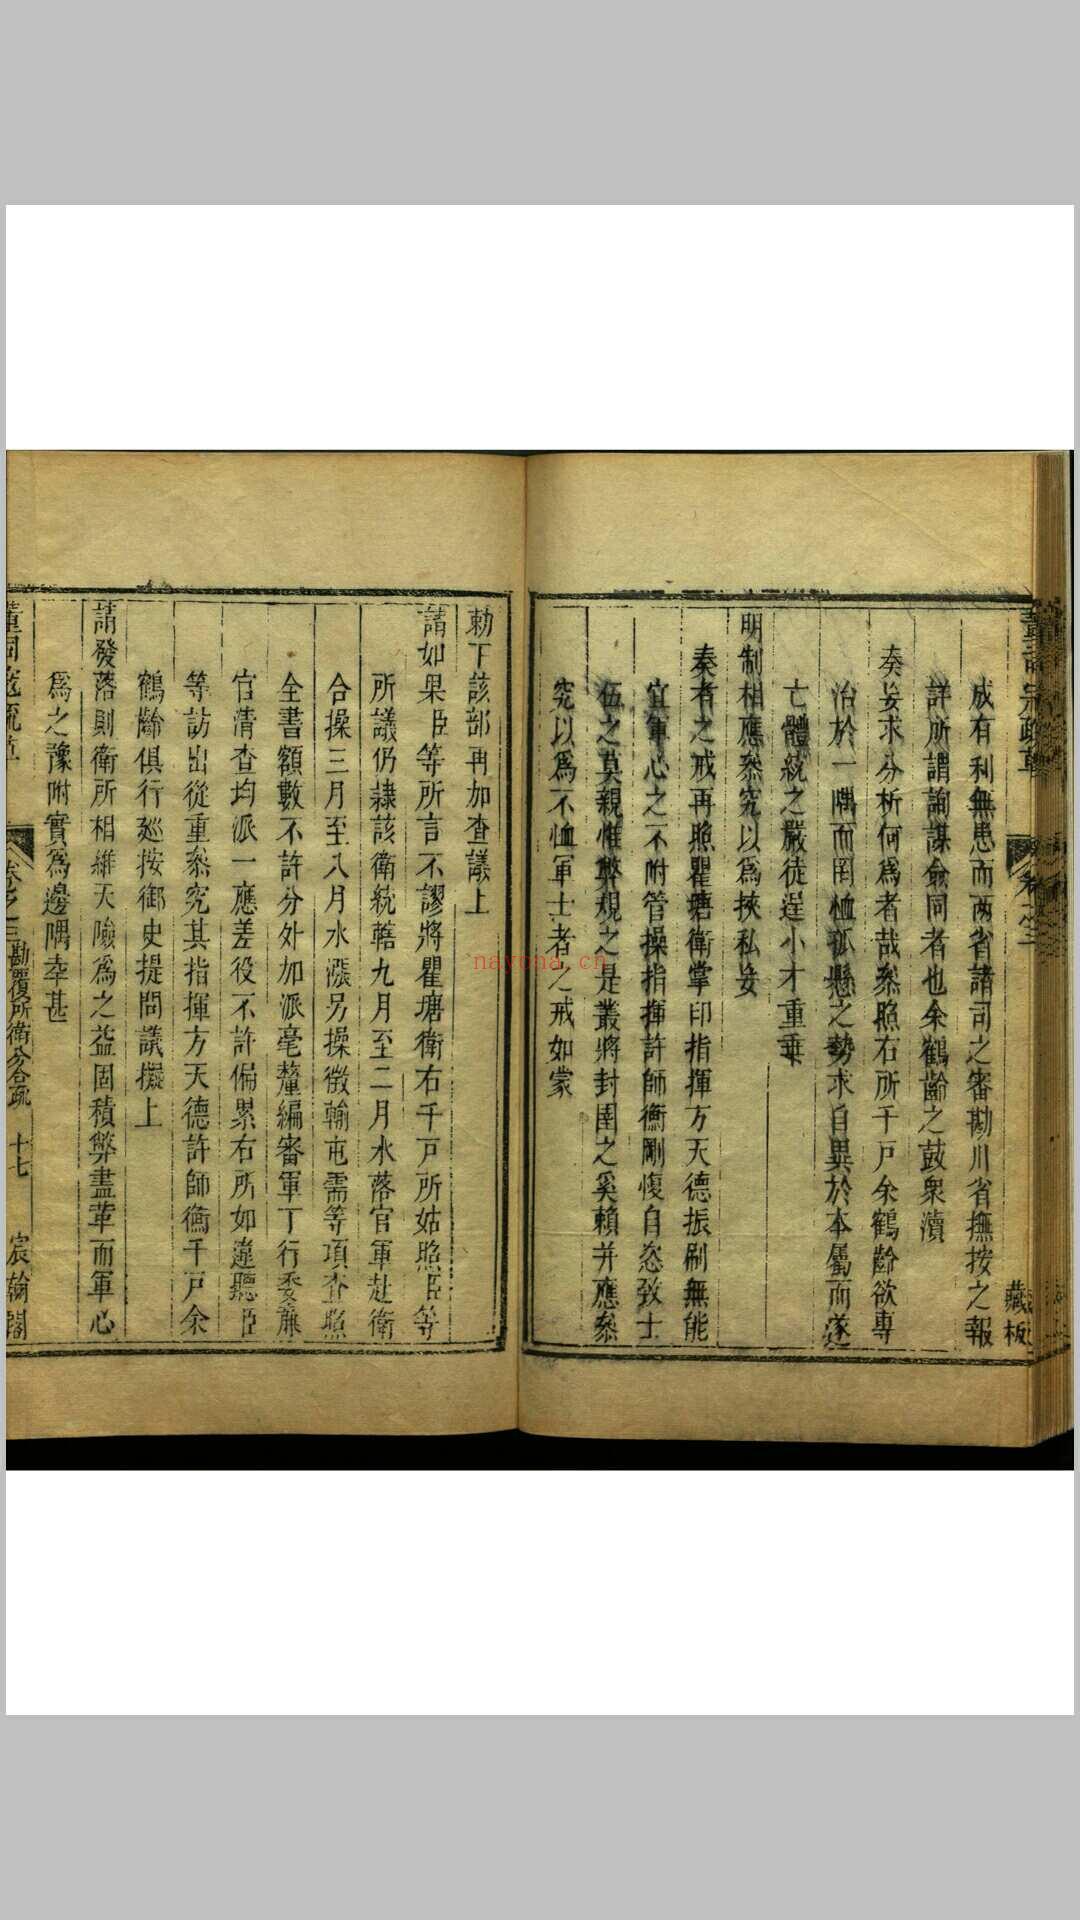 藏板
成有利無患而兩省諸司之審勘川省撫按之報
詳所謂詢謀僉同者也余鶴齡之鼓衆瀆
奏妄求分析何爲者哉叅照右所千戸余鶴齡欲專
治於一隅而罔恤孤懸之勢求自異於本屬而遂
亡體統之嚴徒逞小才重乗
明制相應叅究以爲挾私妄
奏者之戒再照瞿塘衛掌印指揮方天德振刷無能
宜軍心之不附管操指揮許師衡剛愎自恣致士
伍之莫親惟弊規之是叢將封圉之奚賴并應叅
究以爲不恤軍士者之戒如蒙
勅下該部再加查議上
請如果臣等所言不謬將瞿塘衛右千戸所姑照臣等
所議仍隷該衛統轄九月至二月水落官軍赴衛
合操三月至八月水漲另操徴輸屯需等項查照
全書額數不許分外加派毫釐編審軍丁行委廉
官清查均派一應差役不許偏累右所如違聽臣
等訪出從重叅究其指揮方天德許師衡千戸余
鶴齡俱行廵按御史提問議擬上
請發落則衛所相維天險爲之益固積弊盡革而軍心
爲之豫附實爲邊隅幸甚
卷之二 勘覆所衛分合疏 十七 宸翰閣
nayona.cn